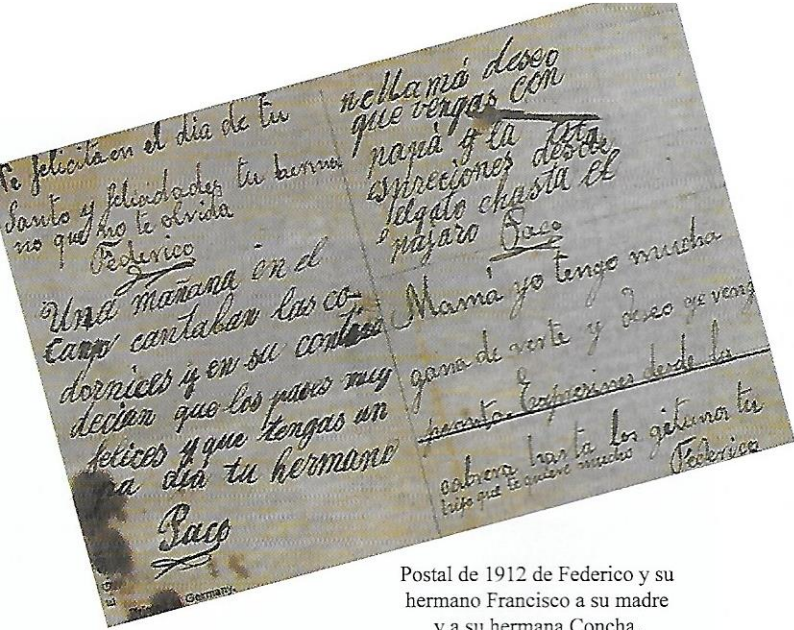 Te felicita en el dia de tu
Santo y felicidades tu herma
no que no te olvida
Federico
Una mañana en el
campo cantaban las co-
dornices y en su
decian que los pases muy
felices y que tengas un
dia tu hermano
Paco
Germany.
Mamá deseo
que vengas con
papá y la
espreciones desde
elgato chasta el
pajaro Paco
Mamá yo tengo mucha
gana de verte y deseo qe veng
pronto. Expresiones desde la
cabrera hasta los gitanos tu
hijo que te quiere mucho Federico
Postal de 1912 de Federico y su
hermano Francisco a su madre
y a su hermana Concha.